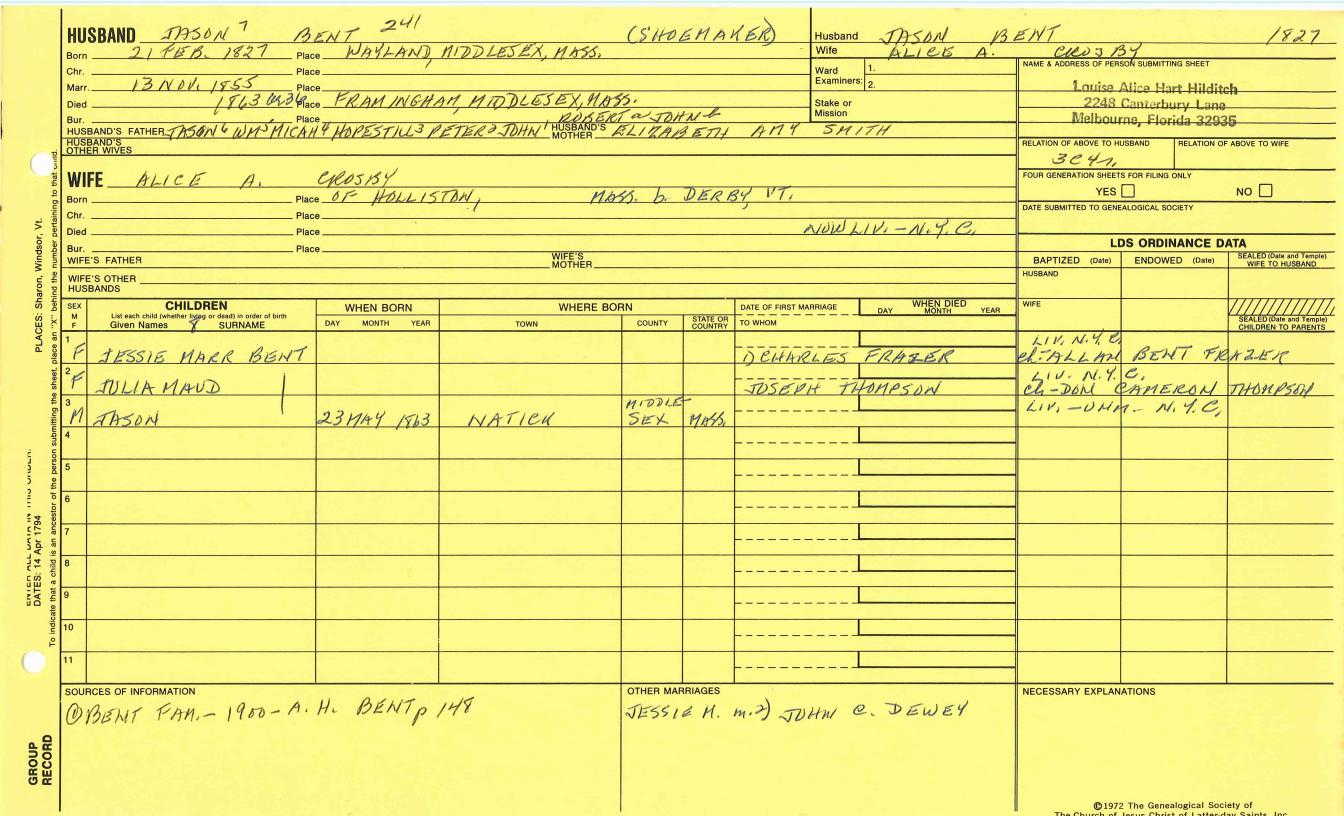 HUSBAND JASON 7 BENT 241 (SHOEMAKER)
Born 21 FEB. 1827 Place WAYLAND, MIDDLESEX, MASS.
Chr. Place
Marr. 13 NOV. 1855 Place
Died 1863 aged 36 Place FRAMINGHAM, MIDDLESEX, MASS.
Bur. Place ROBERT a JOHN b
HUSBAND'S FATHER JASON 6 WM 5 MICAH 4 HOPESTILL 3 PETER 2 JOHN 1 HUSBAND'S MOTHER ELIZABETH AMY SMITH
HUSBAND'S OTHER WIVES
WIFE ALICE A. CROSBY
Born Place OF HOLLISTON, MASS. b. DERBY, VT.
Chr. Place
Died Place NOW LIV. - N.Y.C.
Bur. Place
WIFE'S FATHER WIFE'S MOTHER
WIFE'S OTHER HUSBANDS
Husband JASON BENT 1827
Wife ALICE A. CROSBY
Ward Examiners: 1.
2.
Stake or Mission
NAME & ADDRESS OF PERSON SUBMITTING SHEET
Louise Alice Hart Hilditch
2248 Canterbury Lane
Melbourne, Florida 32935
RELATION OF ABOVE TO HUSBAND RELATION OF ABOVE TO WIFE
3C4r.
FOUR GENERATION SHEETS FOR FILING ONLY
YES NO
DATE SUBMITTED TO GENEALOGICAL SOCIETY
LDS ORDINANCE DATA
BAPTIZED (Date) ENDOWED (Date) SEALED (Date and Temple) WIFE TO HUSBAND
HUSBAND
WIFE
SEALED (Date and Temple) CHILDREN TO PARENTS
SEX M F CHILDREN WHEN BORN WHERE BORN DATE OF FIRST MARRIAGE WHEN DIED
List each child (whether living or dead) in order of birth
Given Names 8 SURNAME DAY MONTH YEAR TOWN COUNTY STATE OR COUNTRY TO WHOM DAY MONTH YEAR
1 LIV. N.Y.C.
F JESSIE MARR BENT 1) CHARLES FRAZER ch-ALLAN BENT FRAZER
2 LIV. N.Y.C.
F JULIA MAUD JOSEPH THOMPSON ch-DON CAMERON THOMPSON
3 LIV. -UNM- N.Y.C.
M JASON 23 MAY 1863 NATICK MIDDLESEX MASS.
4
5
6
7
8
9
10
11
SOURCES OF INFORMATION
① BENT FAM. - 1900 - A. H. BENT p 148
OTHER MARRIAGES
JESSIE M. m. 2) JOHN C. DEWEY
NECESSARY EXPLANATIONS
©1972 The Genealogical Society of
The Church of Jesus Christ of Latter-day Saints, Inc.
PLACES: Sharon, Windsor, Vt.
ENTER ALL DATA IN THIS ORDER:
DATES: 14 Apr 1794
To indicate that a child is an ancestor of the person submitting the sheet, place an "X" behind the number pertaining to that child.
GROUP RECORD